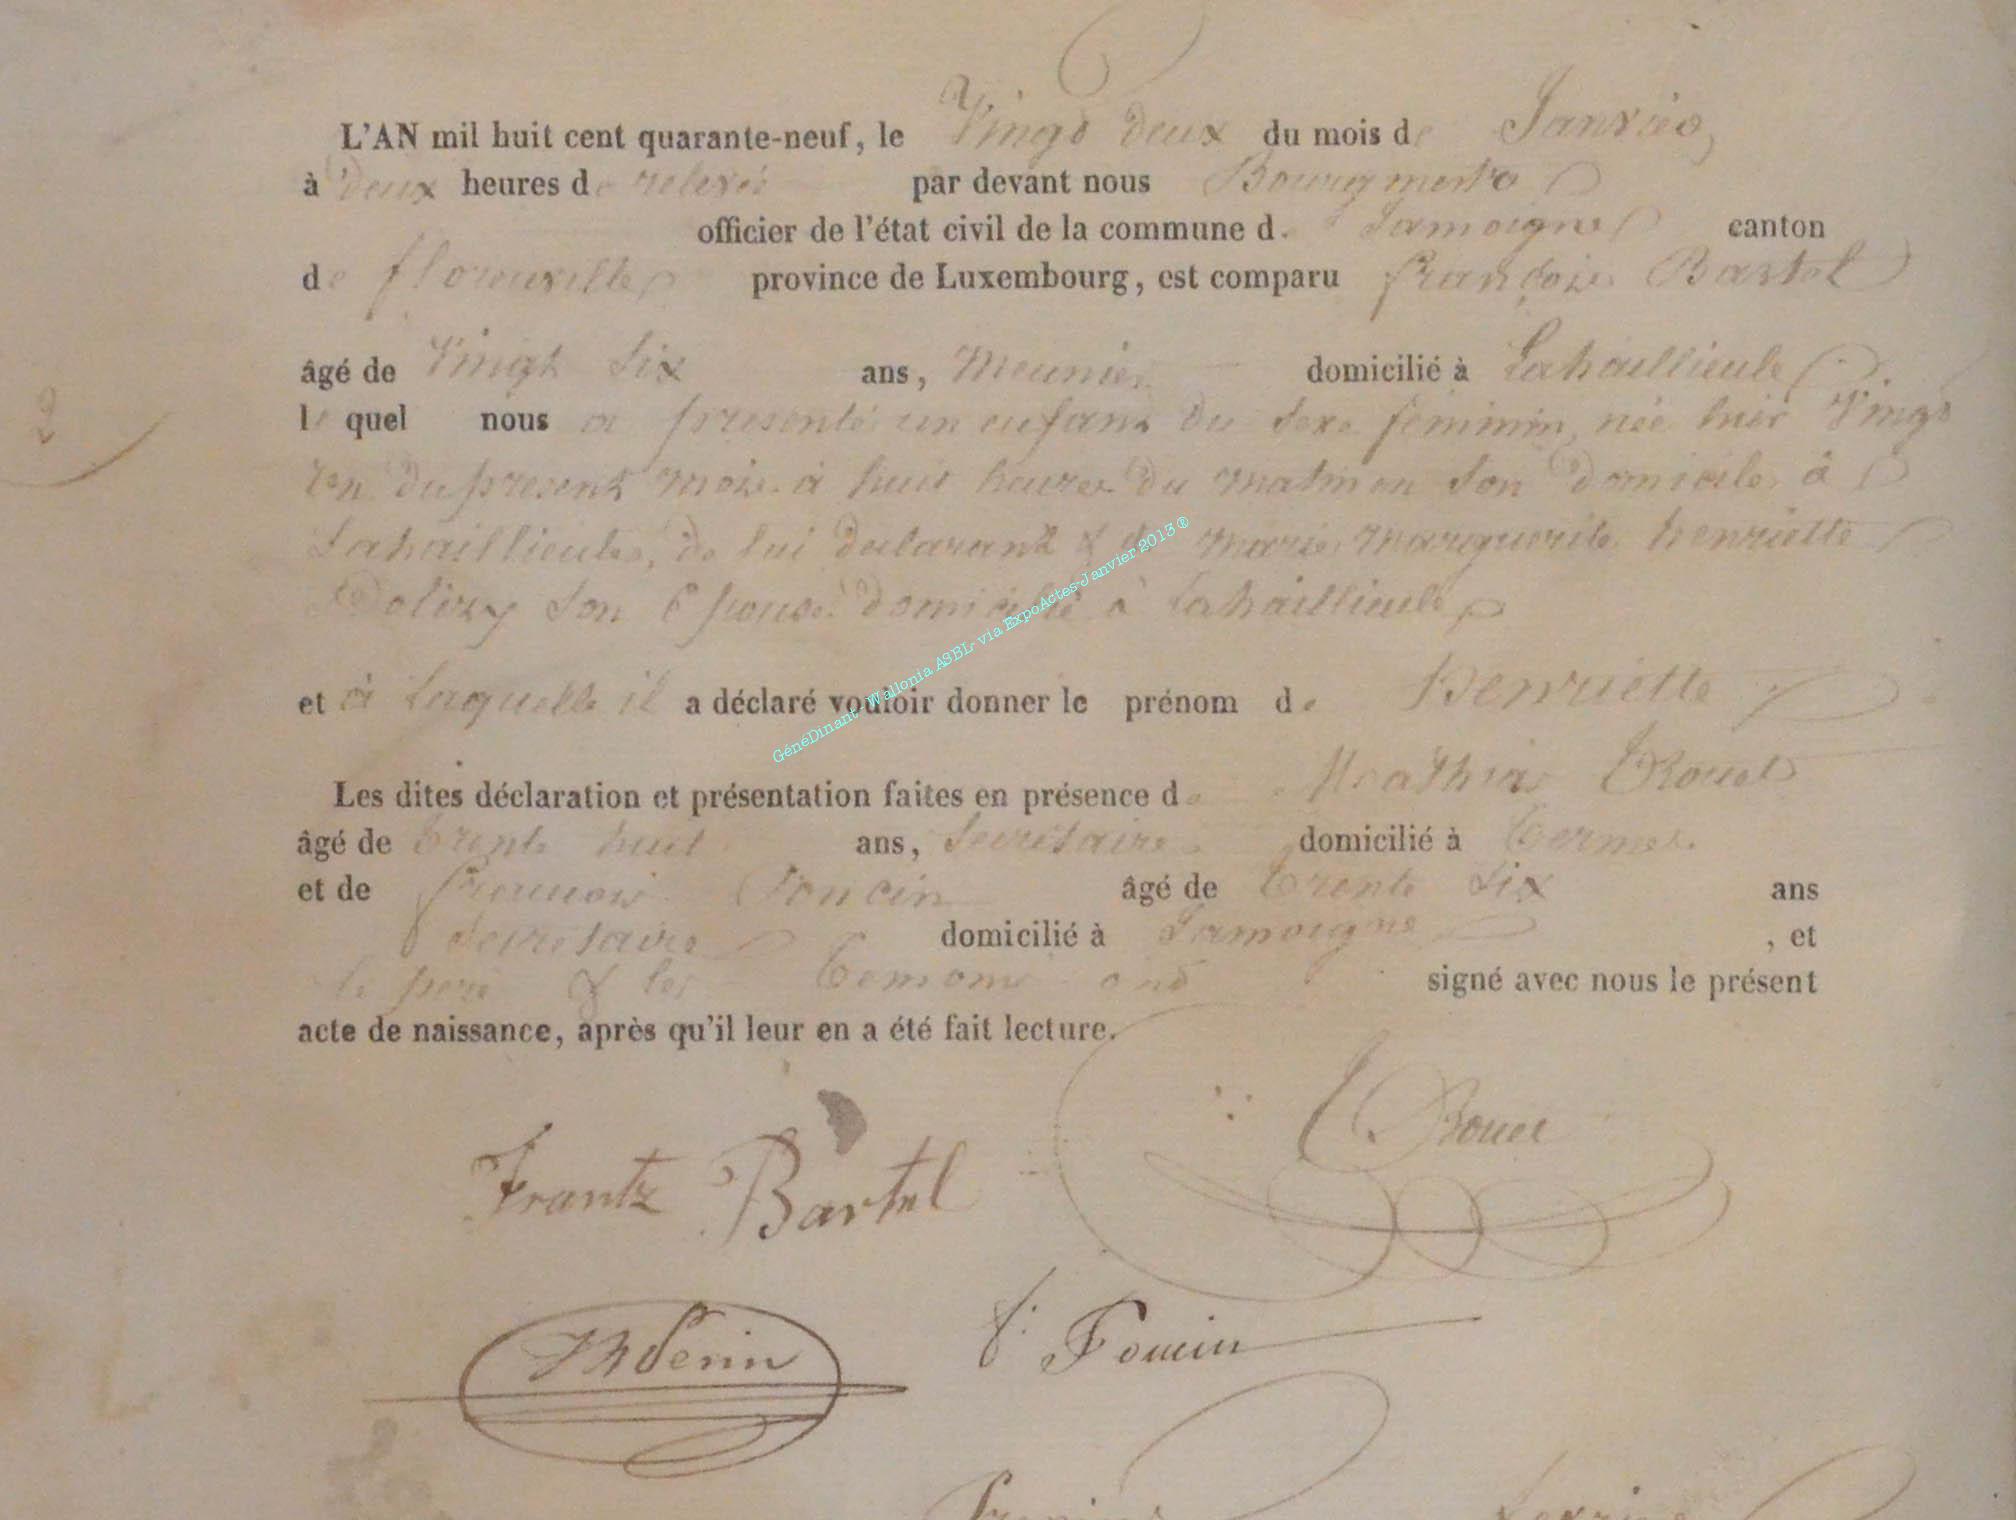 L'AN mil huit cent quarante-neuf, le Vingt deux du mois de Janvier
à deux heures de relevée par devant nous Bourgmestre
officier de l'état civil de la commune de Jamoigne canton
de florenville province de Luxembourg, est comparu françois Bartel
âgé de Vingt Six ans, Meunier domicilié à Lahaillieule
le quel nous a presenté un enfant du Sexe féminin, née hier Vingt
un du present mois à huit heures du matin en Son domicile à
Lahaillieule, de lui declarant & de marie marguerite henriette
Dolizy Son Epouse domicilié à Lahaillieule
et à laquelle il a déclaré vouloir donner le prénom de Henriette
Les dites déclaration et présentation faites en présence de Mathias Rouet
âgé de trente huit ans, Secrétaire domicilié à termes
et de françois Foncin âgé de trente Six ans
Secrétaire domicilié à Jamoigne, et
le pere & les temoins ont signé avec nous le présent
acte de naissance, après qu'il leur en a été fait lecture.
2
GénéDinant - Wallonia ASBL- via ExpoActes-Janvier 2013®
Frantz Bartel
Rouet
f. Foncin